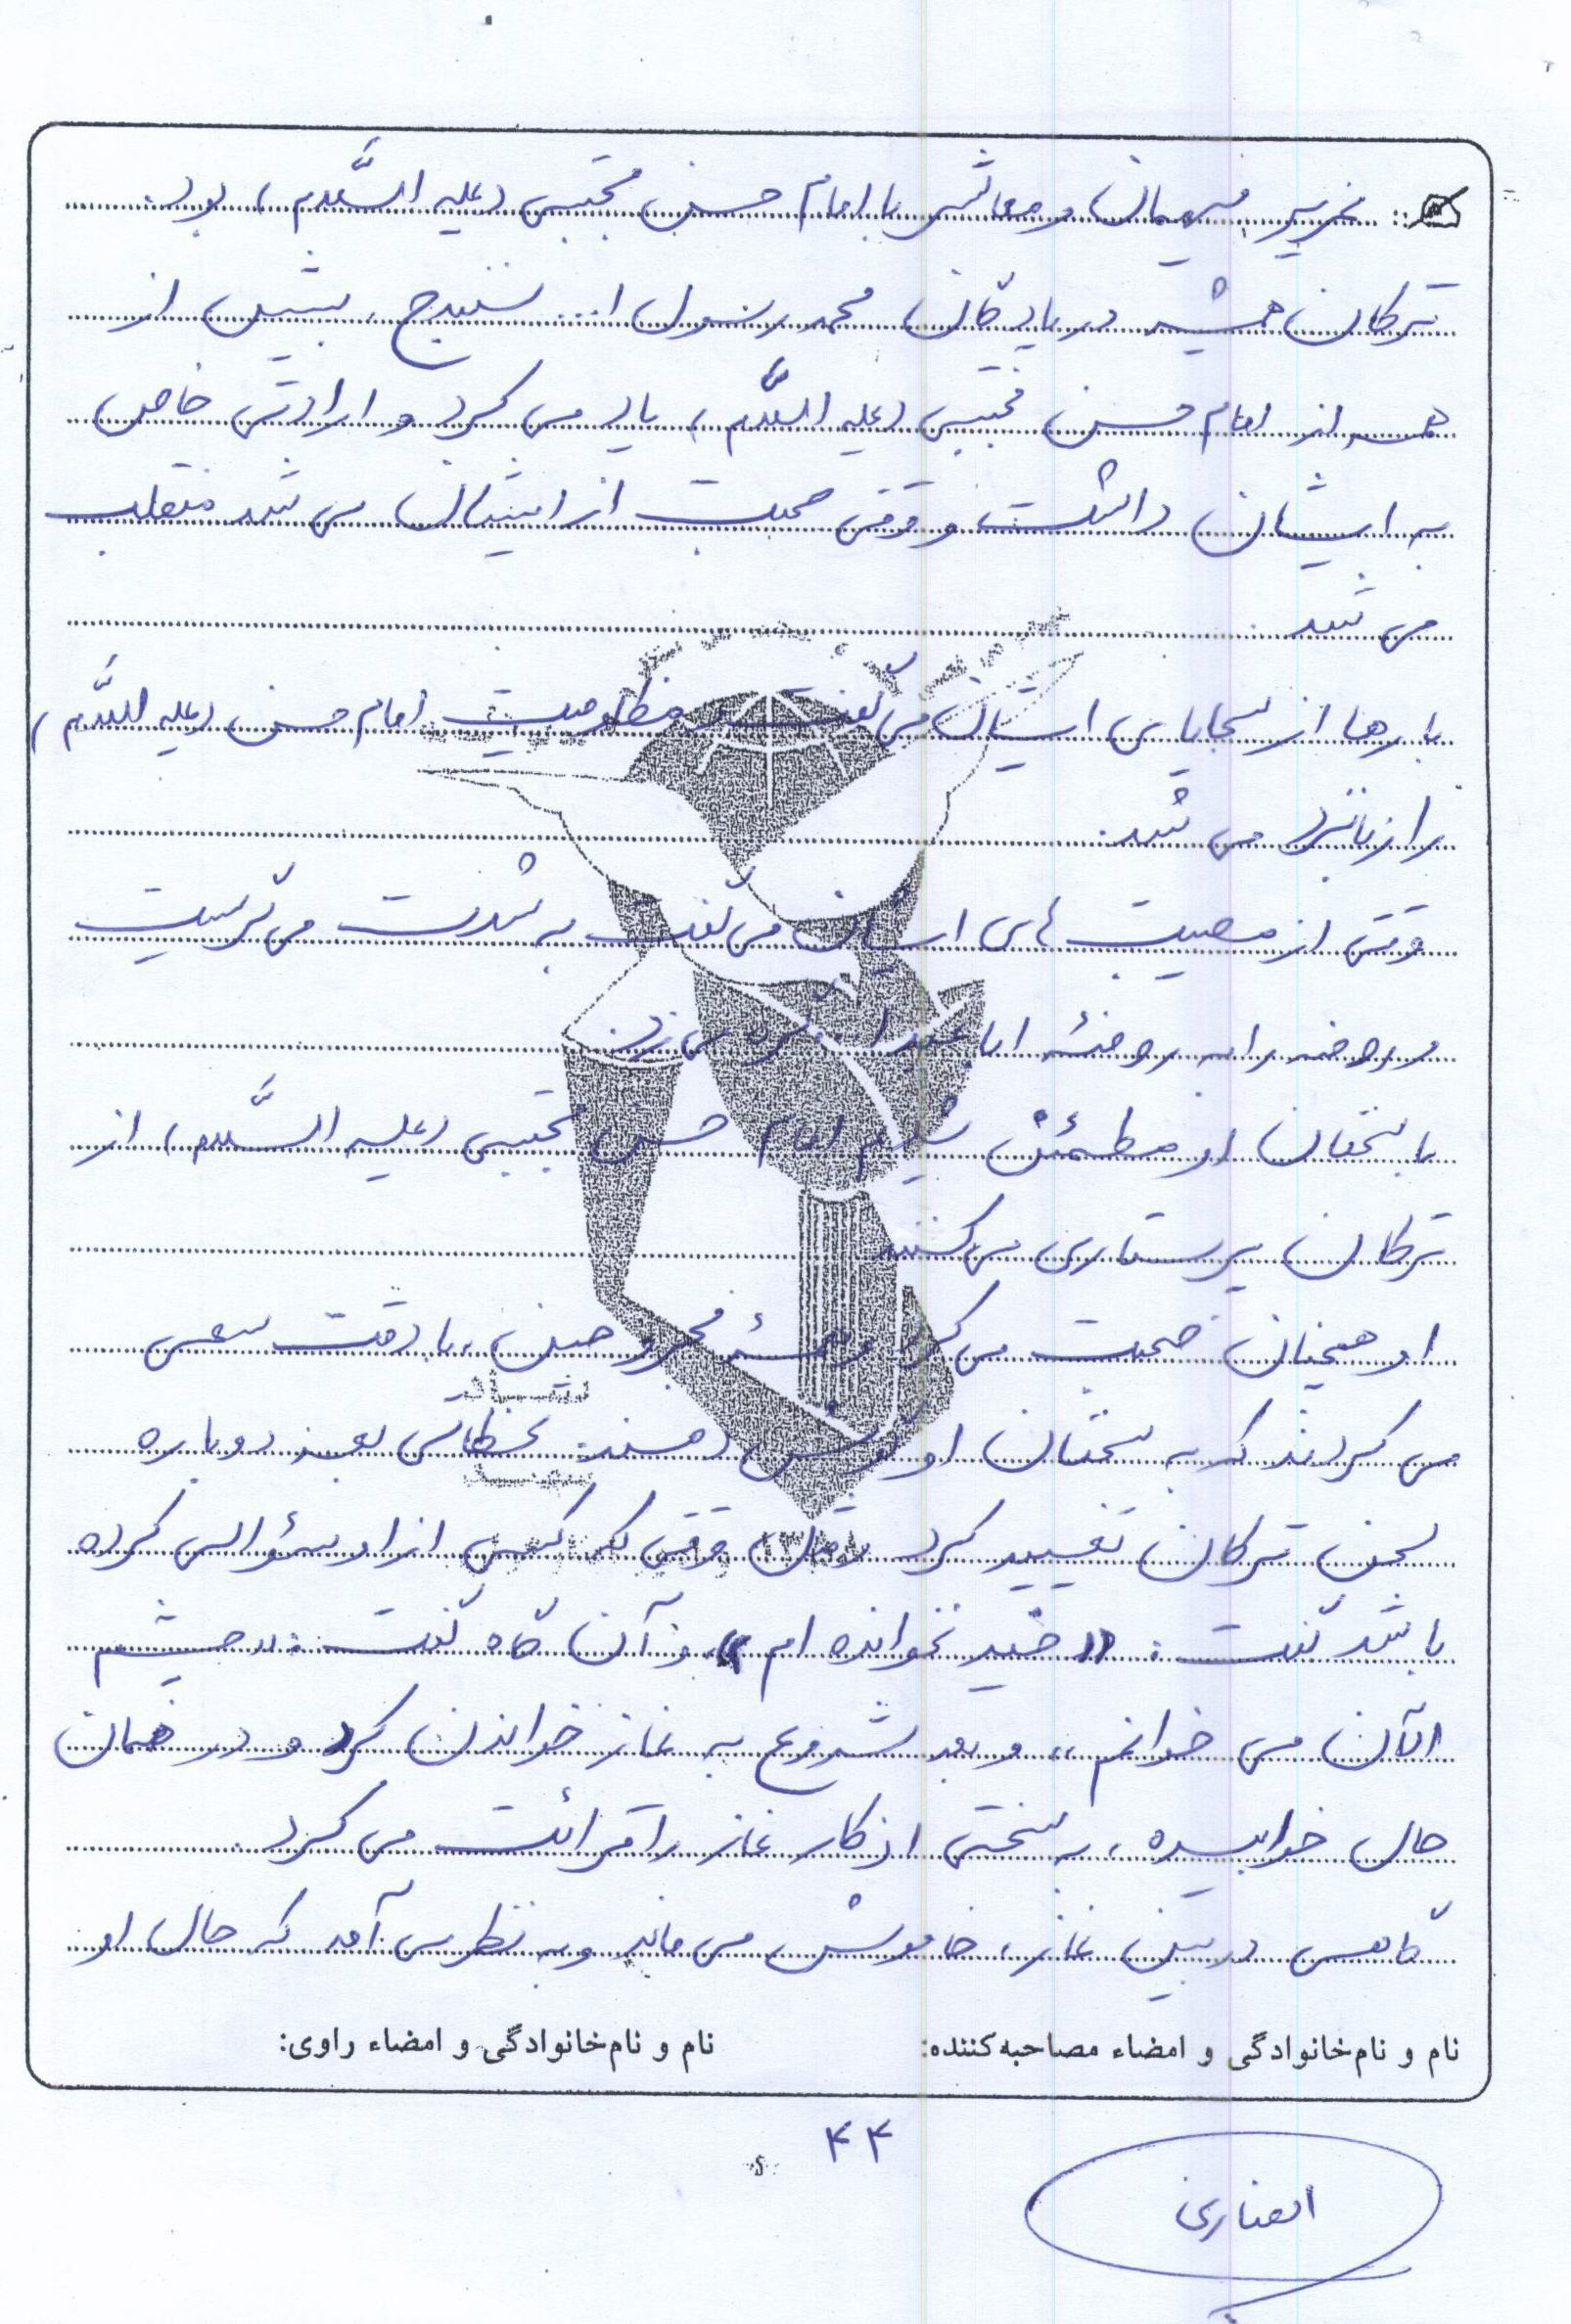 میهمان و معاشر با امام حسن مجتبی (علیه السَّلام) بود.
ترکان همیشه در پادگان محمد رسول ا... سنندج، بیش از
همه از امام حسن مجتبی (علیه السَّلام) یاد می کرد و ارادتی خاص
به ایشان داشت وقتی صحبت از ایشان می شد منقلب
می شد.
بارها از سجایای ایشان می گفت و مظلومیت امام حسن (علیه السَّلام)
را زبانزد می شد.
وقتی از مصیبت های ایشان می گفت به شدت می گریست
و روضه را به روضهٔ اباعبدا... گره می زد.
با سخنان او مطمئن شدم امام حسن مجتبی (علیه السَّلام) از
ترکان پرستاری می کنند.
او همچنان صحبت می کرد و همهٔ مجروحین، با دقت سعی
می کردند که به سخنان او گوش دهند. لحظاتی بعد دوباره
لحن ترکان تغییر کرد و مثل وقتی که کسی از او سؤالی کرده
باشد گفت: «خیر نخوانده ام» و آن گاه گفت: «چشم
الآن می خوانم» و بعد شروع به نماز خواندن کرد و در همان
حال خوابیده، به سختی اذکار نماز را قرائت می کرد.
گاهی در بین نماز، خاموش می ماند و به نظر می آمد که حال او
نام و نام‌خانوادگی و امضاء مصاحبه‌کننده: نام و نام‌خانوادگی و امضاء راوی:
۴۴